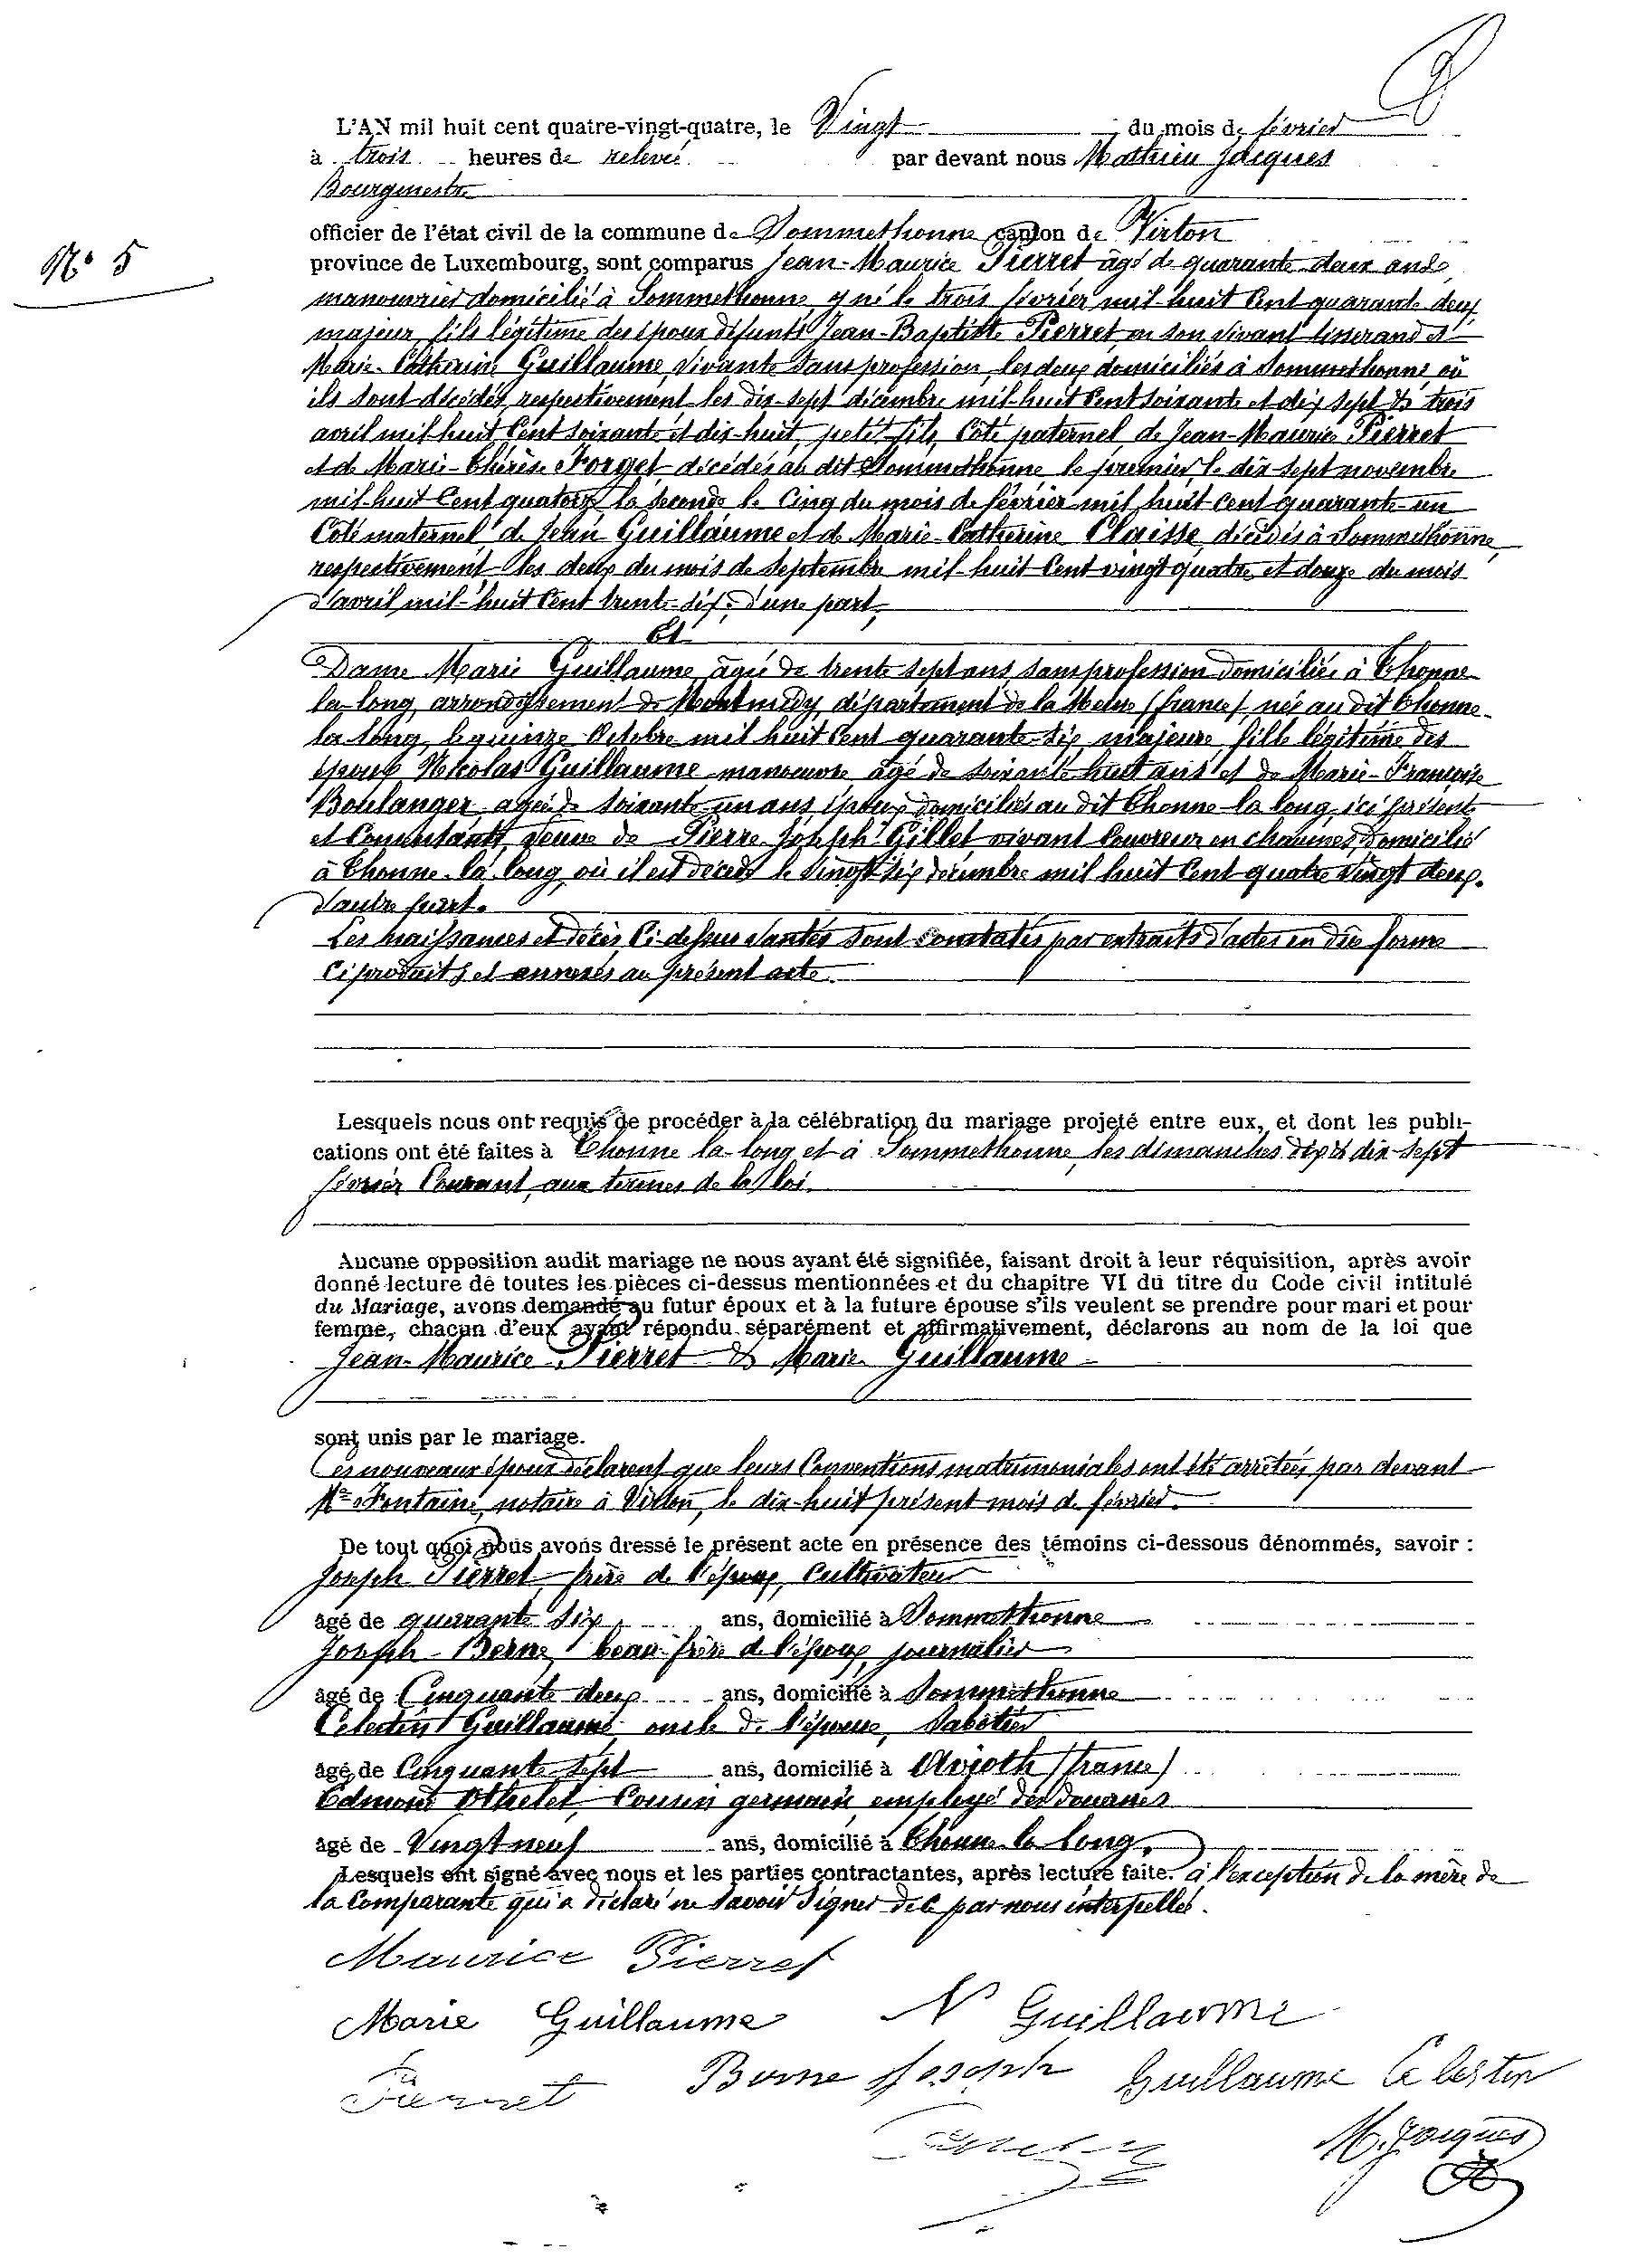 L'AN mil huit cent quatre-vingt-quatre, le Vingt du mois de février
à trois heures de relevée par devant nous Mathieu Jacques
Bourgmestre
officier de l'état civil de la commune de Sommethonne canton de Virton
N° 5
province de Luxembourg, sont comparus Jean-Maurice Pierret âgé de quarante deux ans
manouvrier domicilié à Sommethonne y né le trois février mil huit cent quarante deux
majeur, fils légitime des époux défunts Jean-Baptiste Pierret en son vivant tisserand et
Marie-Catherine Guillaume, vivante sans profession, les deux domiciliés à Sommethonne où
ils sont décédés, respectivement les dix-sept décembre mil-huit Cent soixante et dix sept & trois
avril mil huit Cent soixante et dix-huit, petit-fils, Côté paternel de Jean-Maurice Pierret
et de Marie-Thérèse Forget décédés au dit Sommethonne le premier, le dix-sept novembre
mil-huit Cent quatorze la seconde le Cinq du mois de février mil huit Cent quarante-un
Côté maternel de Jean Guillaume et de Marie-Catherine Claisse, décédés à Sommethonne,
respectivement les deux du mois de Septembre mil-huit Cent vingt quatre et douze du mois
d'avril mil-huit Cent trente-six, d'une part,
Et
Dame Marie Guillaume, âgée de trente sept ans, sans profession domiciliée à Thonne-
la-long, arrondissement de Montmédy, département de la Meuse (france), née au dit Thonne-
la-long, le quinze Octobre mil huit Cent quarante-six, majeure fille légitime des
époux Nicolas Guillaume manoeuvre âgé de soixante huit ans et de Marie-Françoise
Boulanger, agée de soixante-un ans, époux domiciliés au dit Thonne-la-long, ici présents
et Consentants, veuve de Pierre-Joseph Gillet vivant Couvreur en chaumes, domicilié
à Thonne-la-long, où il est décédé le Vingt six décembre mil huit Cent quatre Vingt deux.
d'autre part.
Les naissances et décès Ci-dessus vantés sont constatés par extraits d'actes en due forme
Ci produits et annexés au présent acte.
Lesquels nous ont requis de procéder à la célébration du mariage projeté entre eux, et dont les publi-
cations ont été faites à Thonne la-long et à Sommethonne, les dimanches dix & dix-sept
février Courant, aux termes de la loi.
Aucune opposition audit mariage ne nous ayant été signifiée, faisant droit à leur réquisition, après avoir
donné lecture de toutes les pièces ci-dessus mentionnées et du chapitre VI du titre du Code civil intitulé
du Mariage, avons demandé au futur époux et à la future épouse s'ils veulent se prendre pour mari et pour
femme, chacun d'eux ayant répondu séparément et affirmativement, déclarons au nom de la loi que
Jean-Maurice Pierret & Marie Guillaume
sont unis par le mariage.
Les nouveaux époux déclarent que leurs Conventions matrimoniales ont été arrêtées par devant
Me Fontaine, notaire à Virton, le dix-huit présent mois de février.
De tout quoi nous avons dressé le présent acte en présence des témoins ci-dessous dénommés, savoir :
Joseph Pierret, frère de l'époux, Cultivateur
âgé de quarante six ans, domicilié à Sommethonne
Joseph Berne, beau-frère de l'époux, journalier
âgé de Cinquante deux ans, domicilié à Sommethonne
Celestin Guillaume, oncle de l'épouse, Sabotier
âgé de Cinquante sept ans, domicilié à Avioth (france)
Edmond Othelet, Cousin germain, employé des douanes
âgé de Vingt neuf ans, domicilié à Thonne la Long,
Lesquels ont signé avec nous et les parties contractantes, après lecture faite. à l'exception de la mère de
la Comparante qui a déclaré ne savoir Signer de Ce par nous interpellée.
Maurice Pierret
Marie Guillaume N Guillaume
Pierret Berne Joseph Guillaume Celestin
M. Jacques